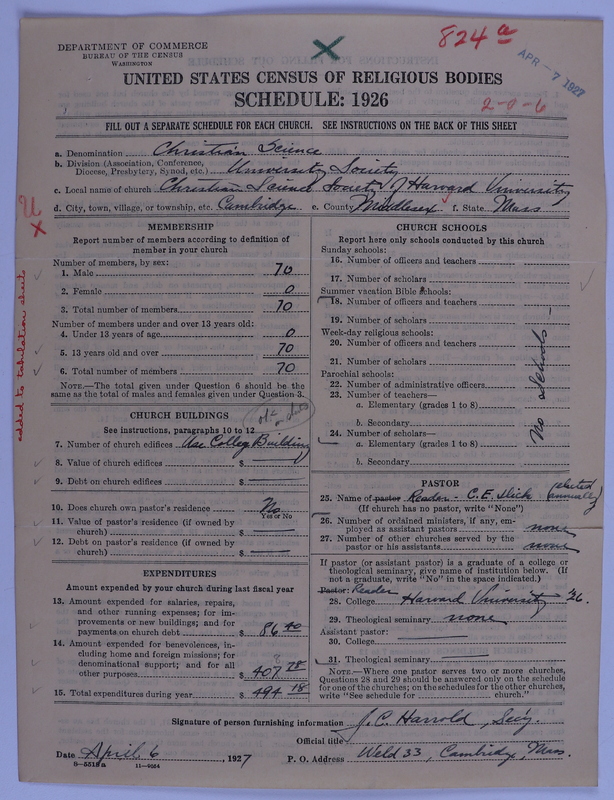 DEPARTMENT OF COMMERCE
BUREAU OF THE CENSUS
WASHINGTON
824 a
APR - 7 1927
UNITED STATES CENSUS OF RELIGIOUS BODIES
SCHEDULE: 1926
2-0-6
FILL OUT A SEPARATE SCHEDULE FOR EACH CHURCH. SEE INSTRUCTIONS ON THE BACK OF THIS SHEET
a. Denomination Christian Science
b. Division (Association, Conference, Diocese, Presbytery, Synod, etc.) University Society
c. Local name of church Christian Science Society of Harvard University
d. City, town, village, or township, etc. Cambridge e. County Middlesex f. State Mass
added to tabulation sheet
MEMBERSHIP
Report number of members according to definition of
member in your church
Number of members, by sex:
1. Male 70
2. Female 0
3. Total number of members 70
Number of members under and over 13 years old:
4. Under 13 years of age 0
5. 13 years old and over 70
6. Total number of members 70
NOTE.—The total given under Question 6 should be the
same as the total of males and females given under Question 3.
CHURCH BUILDINGS
See instructions, paragraphs 10 to 12
7. Number of church edifices Use College Building
8. Value of church edifices $
9. Debt on church edifices $
10. Does church own pastor's residence? No
Yes or No
11. Value of pastor's residence (if owned by
church) $
12. Debt on pastor's residence (if owned by
church) $
EXPENDITURES
Amount expended by your church during last fiscal year
13. Amount expended for salaries, repairs,
and other running expenses; for im-
provements or new buildings; and for
payments on church debt $ 86 40
14. Amount expended for benevolences, in-
cluding home and foreign missions; for
denominational support; and for all
other purposes $ 407 78
15. Total expenditures during year $ 494 18
CHURCH SCHOOLS
Report here only schools conducted by this church
Sunday schools:
16. Number of officers and teachers
17. Number of scholars
Summer vacation Bible schools:
18. Number of officers and teachers
19. Number of scholars
Week-day religious schools:
20. Number of officers and teachers
21. Number of scholars
Parochial schools:
22. Number of administrative officers
23. Number of teachers—
a. Elementary (grades 1 to 8)
b. Secondary
24. Number of scholars—
a. Elementary (grades 1 to 8)
b. Secondary
No Schools
PASTOR
25. Name of pastor Reader - C. E. Slick (elected annually)
(If church has no pastor, write "None")
26. Number of ordained ministers, if any, em-
ployed as assistant pastors none
27. Number of other churches served by the
pastor or his assistants none
If pastor (or assistant pastor) is a graduate of a college or
theological seminary, give name of institution below. (If
not a graduate, write "No" in the space indicated.)
Pastor: Reader
28. College Harvard University '26.
29. Theological seminary none
Assistant pastor:
30. College
31. Theological seminary
NOTE.—Where one pastor serves two or more churches,
Questions 28 and 29 should be answered only on the schedule
for one of the churches; on the schedules for the other churches,
write "See schedule for church."
Signature of person furnishing information J. C. Harrold, Sec'y.
Official title
Date April 6, 1927 P. O. Address Weld 33, Cambridge, Mass.
8—5518a 11—9034